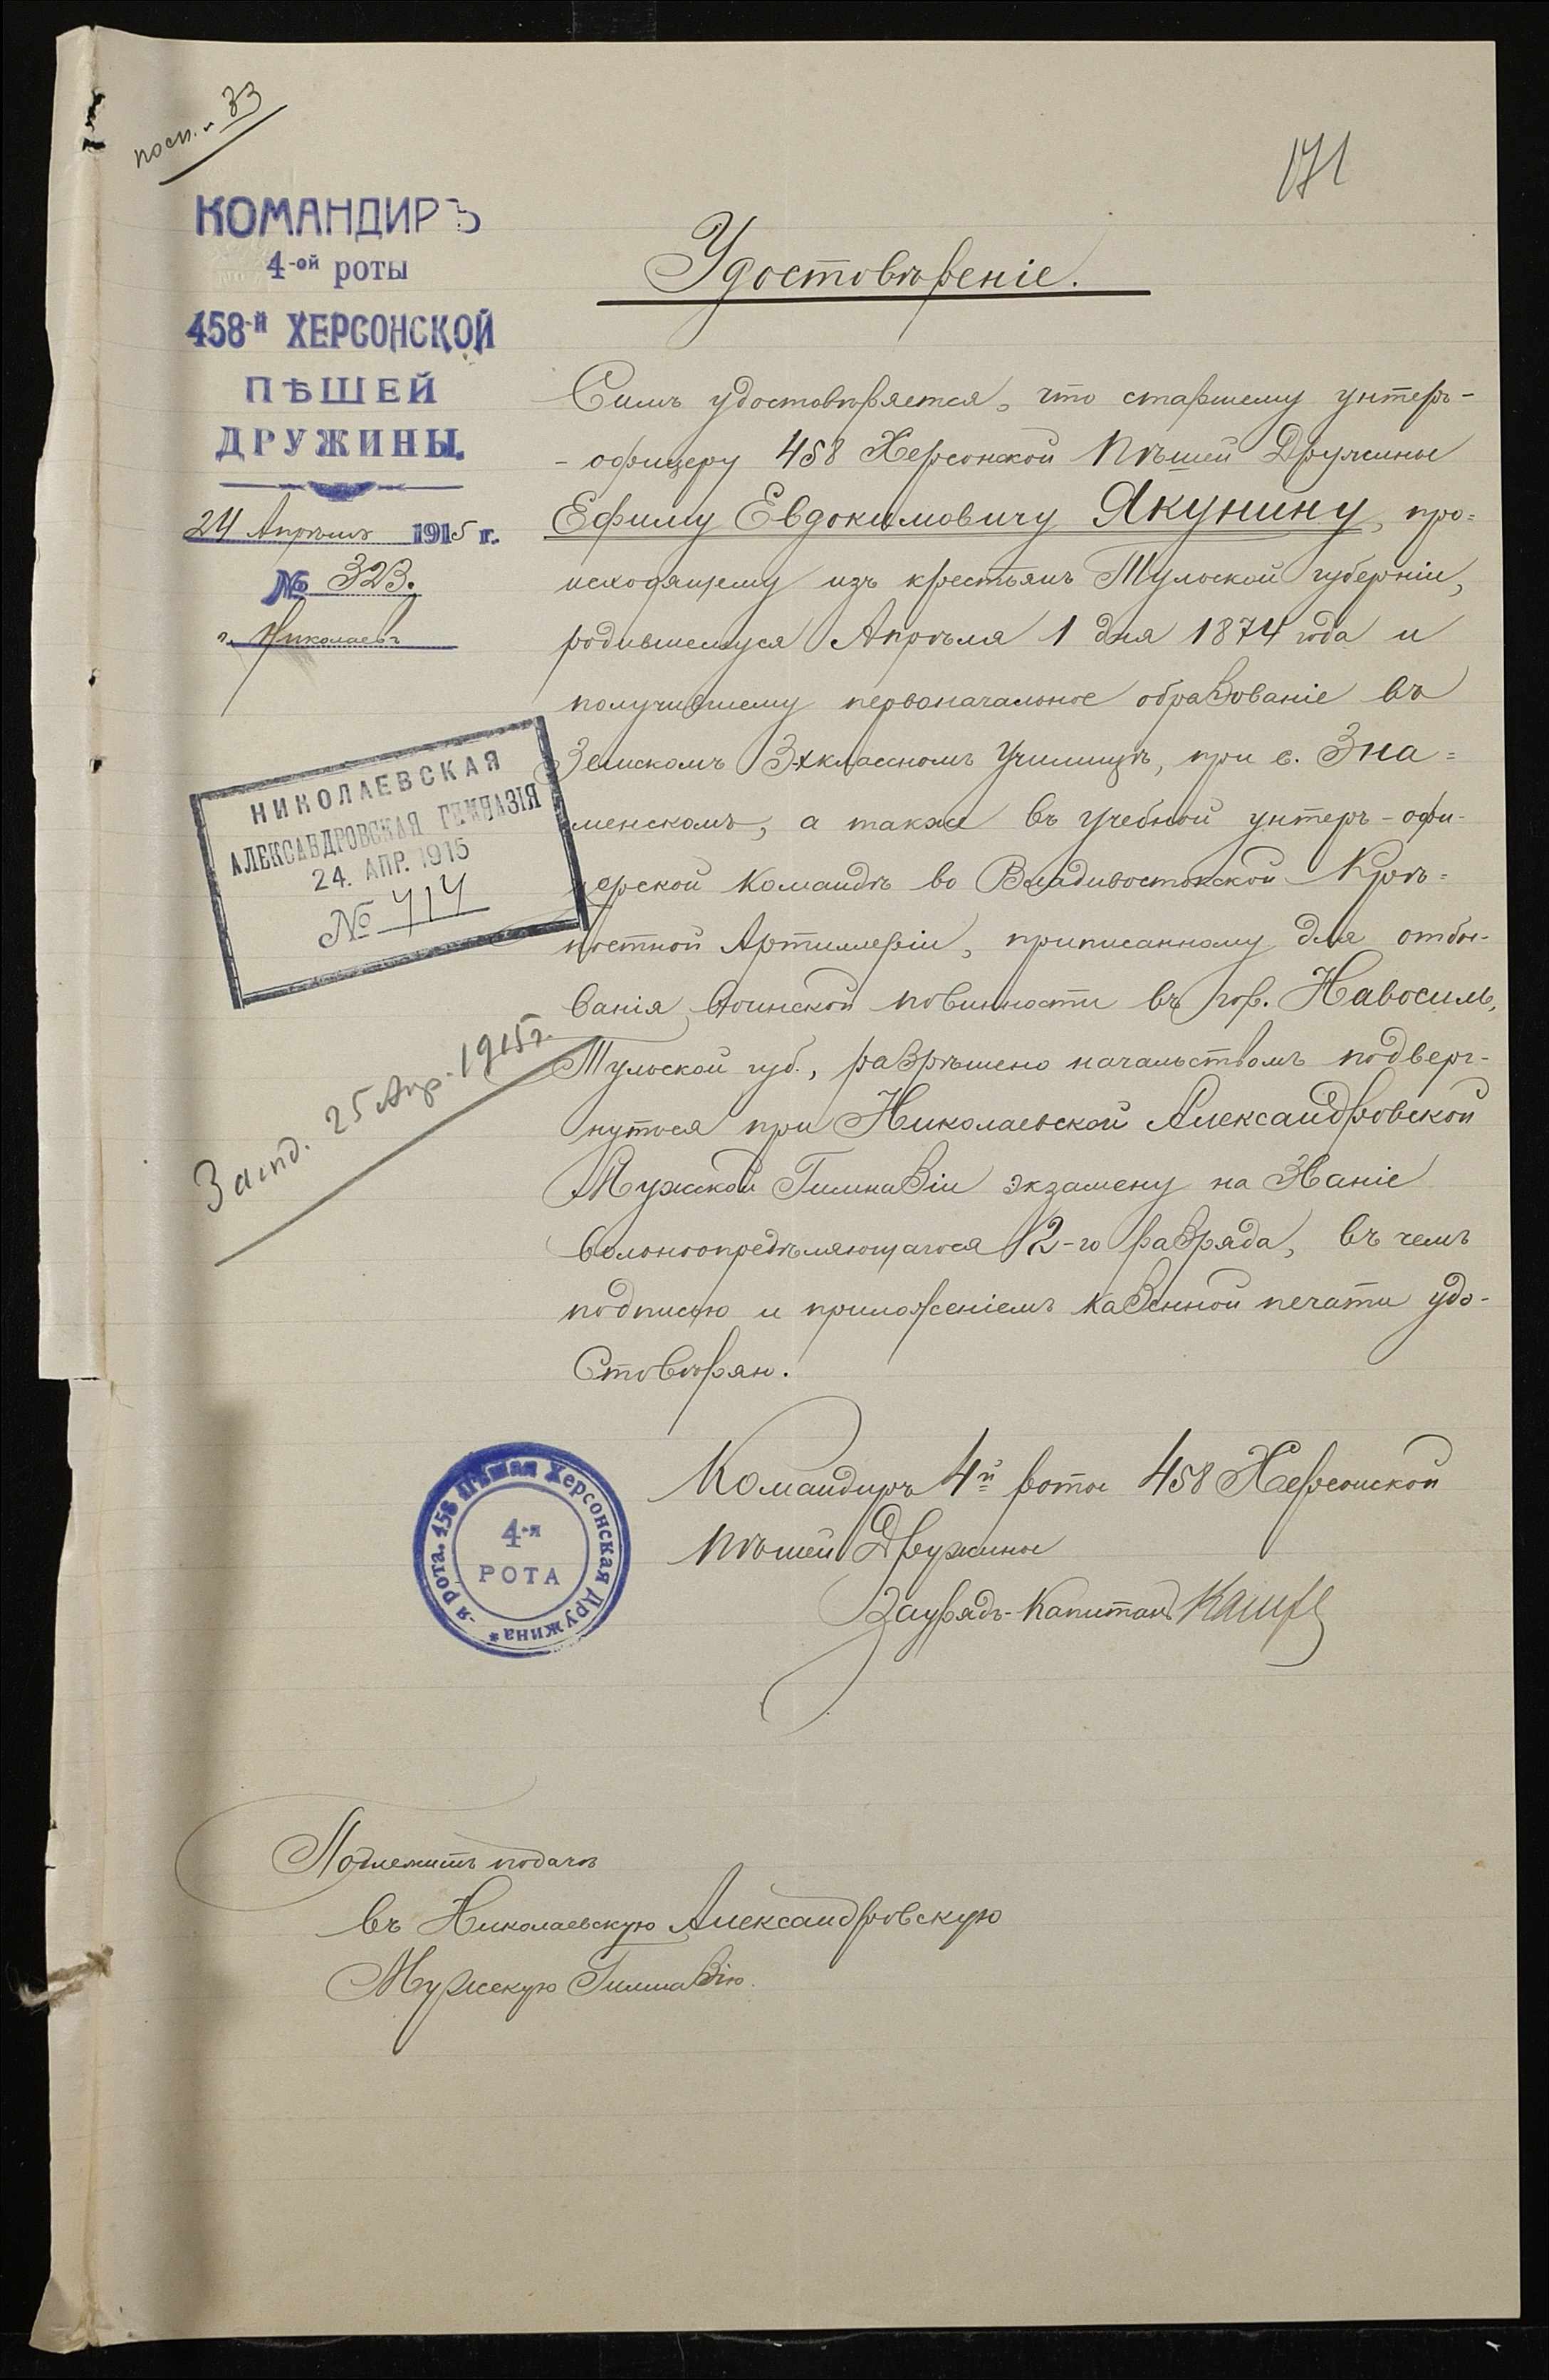 посп. 33
171
КОМАНДИРЪ
4-ой роты
458-й ХЕРСОНСКОЙ
ПѢШЕЙ
ДРУЖИНЫ.
24 Апрѣля 1915 г.
№ 323.
г. Николаевъ
Удостовѣреніе.
Симъ удостовѣряется, что старшему унтеръ-
-офицеру 458 Херсонской Пѣшей Дружины
Ефиму Евдокимовичу Якунину, про=
исходящему изъ крестьянъ Тульской губерніи,
родившемуся Апрѣля 1 дня 1874 года и
получившему первоначальное образованіе въ
Земскомъ 3-хклассномъ Училищѣ, при с. Зна=
менскомъ, а также въ учебной унтеръ-офи-
церской командѣ во Владивостокской Крѣ=
постной Артиллеріи, приписанному для отбы-
ванія воинской повинности въ гор. Навосиль,
Тульской губ., разрѣшено начальствомъ подверг-
нуться при Николаевской Александровской
Мужской Гимназіи экзамену на званіе
вольноопредѣляющагося 2-го разряда, въ чемъ
подписью и приложеніемъ казенной печати удо-
стовѣряю.
НИКОЛАЕВСКАЯ
АЛЕКСАНДРОВСКАЯ ГИМНАЗІЯ
24. АПР. 1915
№ 714
25 Апр. 1915 г.
Командиръ 4й роты 458 Херсонской
пѣшей Дружины
Заурядъ-Капитанъ
4-я рота. 458 Пѣшая Херсонская Дружина*
4-я
РОТА
Подлежитъ подачѣ
въ Николаевскую Александровскую
Мужскую Гимназію.